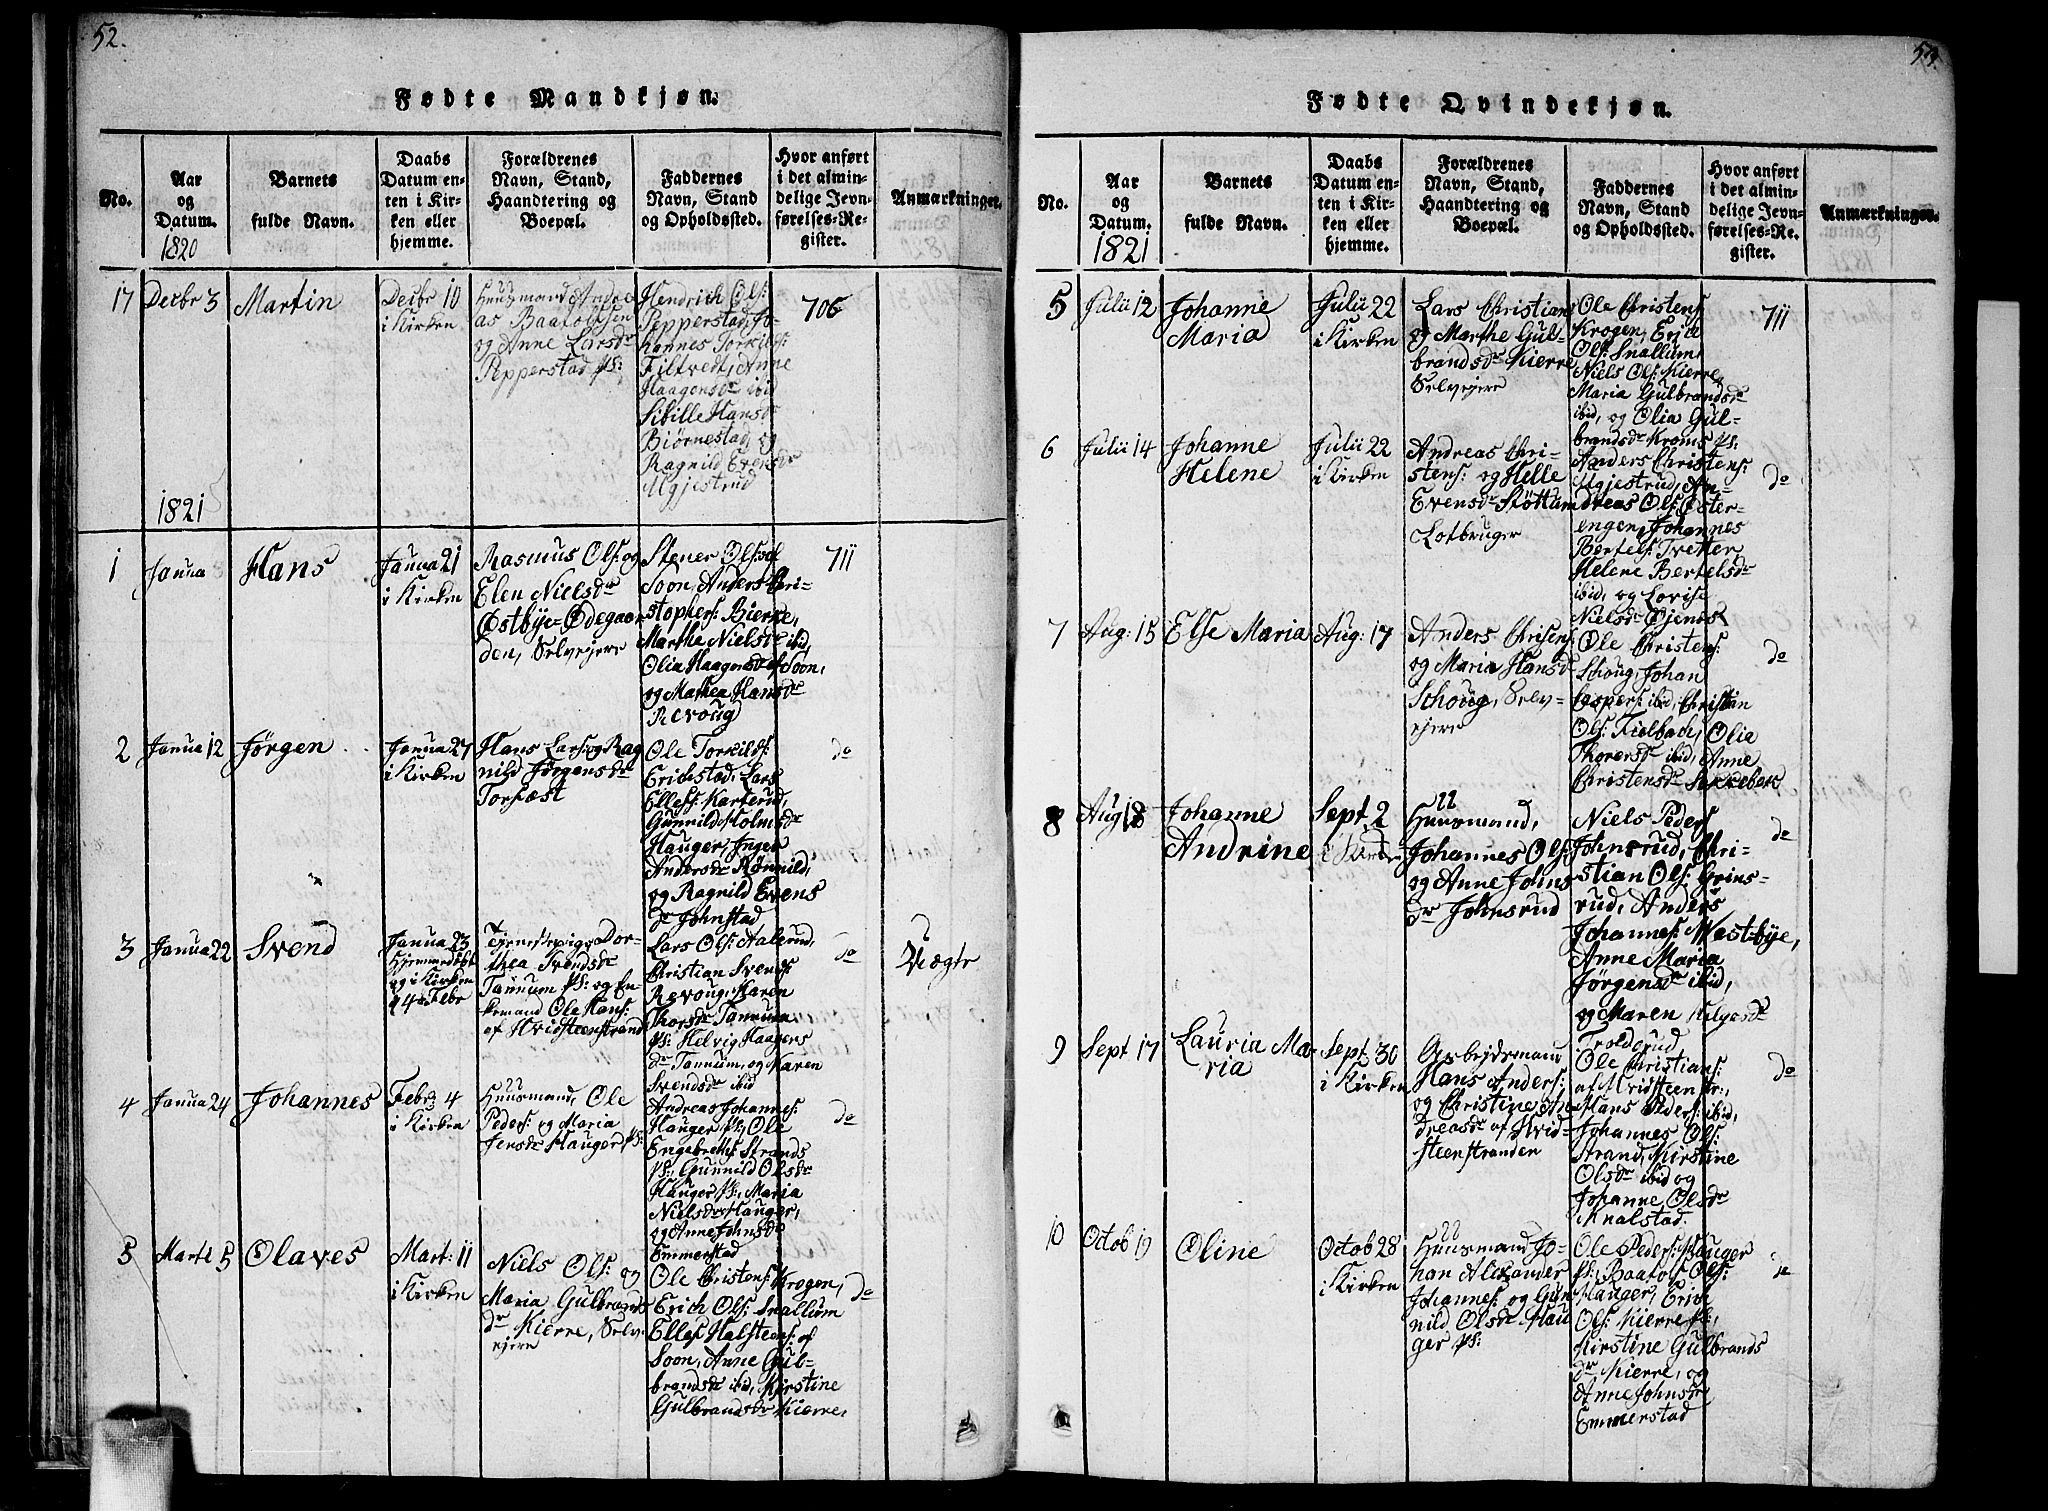 52.
Fødte Mandkjøn.
No.
Aar
og
Datum.
1820
Barnets
fulde Navn.
Daabs
Datum en-
ten i Kir-
ken eller
hjemme.
Forældrenes
Navn, Stand,
Haandtering og
Boepæl.
Faddernes
Navn, Stand
og Opholdssted.
Hvor anført
i det almin-
delige Jevn-
førelses-Re-
gister.
Anmærkninger.
17
Decbr 3
Martin
Decbr 10
i Kirken
Huusmand Andre
as Baatolfsen
og Anne Larsdr
Pepperstad Ps:
Hendrich Ols:
Pepperstad, Jo-
hannes Torkilds:
Filtvedt, Anne
Haagensdr ibid
Sibille Hansdr
Biørnestad, og
Ragnild Evensdr
Ugjestrud
706
1821
1
Janua
Hans
Janua 21
i Kirken
Rasmus Ols: og
Elen Nielsdr
Østbye-Ødegaar
den, Selvejere
Stener Ols: af
Soon Anders Chri-
stophers: Bierke,
Marthe Nielsdr ibid,
Olia Haagensdr af Soon,
og Mathea Hansdr
Revoug
711
2
Janua 12
Jørgen
Janua 27
i Kirken
Hans Lars: og Rag
nild Jørgensdr
Torfæst
Ole Torkilds:
Erichstad, Lars
Ellefs: Karterud,
Gunnild Holmsdr
Hauger, Inger
Andersdr Rønnild,
og Ragnild Evens
dr Johnstad
do
3
Janua 22
Svend
Janua 23
hjemmedøbt
og i Kirken
4de Febr
Tjenestepige Dor-
thea Svendsdr
Tannum Ps: og En-
kemand Ole Hans:
af Hvidsteenstrand
Lars Ols: Aalerud,
Christian Svends:
Revoug, Karen
Thorsdr Tannum
Ps: Helvig Haagens
dr Tannum, og Karen
Svendsdr ibid
do
Uægte
4
Janua 24
Johannes
Febr 4
i Kirken
Huusmand, Ole
Peders: og Maria
Jensdr Hauger Ps:
Andreas Johannes:
Hauger Ps: Ole
Engebretts: Strands
Ps:, Gunnild Olsdr
Hauger Ps:, Maria
Nielsdr Hauger,
og Anne Johnsdr
Emmerstad
do
5
Marti 5
Olaves
Mart: 11
i Kirken
Niels Ols: og
Maria Gulbrands
dr Kierre, Selv-
ejere
Ole Christens: Krogen,
Erich Ols: Snallum
Ellef Halstens: af
Soon, Anne Gul-
brandsdr ibid, Kirstine
Gulbrandsdr Kierre,
do
53.
Fødte Qvindekjøn.
No.
Aar
og
Datum.
1821
Barnets
fulde Navn.
Daabs
Datum en-
ten i Kir-
ken eller
hjemme.
Forældrenes
Navn, Stand,
Haandtering og
Boepæl.
Faddernes
Navn, Stand
og Opholdssted.
Hvor anført
i det almin-
delige Jevn-
førelses-Re-
gister.
Anmærkninger.
5
Julii 12
Johanne
Maria
Julii 22
i Kirken
Lars Christians
og Marthe Gul-
brandsdr Kierre
Selvejere
Ole Christens:
Krogen, Erich
Ols: Snallum,
Niels Ols: Kierre,
Maria Gulbrandsdr
ibid, og Olia Gul-
brandsdr Kroms Ps:
711
6
Julii 14
Johanne
Helene
Julii 22
i Kirken
Andreas Chri-
stens: og Helle
Evensdr Støttum
Lotbruger
Anders Christens:
Ugjestrud, An-
dreas Ols: Øster-
engen, Johannes
Bertels: Tvetter,
Helene Bertelsdr
ibid, og Lovise
Nielsdr Ejenes
do
7
Aug: 15
Else Maria
Aug: 17
Anders Chrisens:
og Maria Hansdr
Schoug, Selv-
ejere
Ole Christens:
Schoug, Johan
Caspers: ibid, Christian
Ols: Fielbach, Olia
Thoresdr ibid, Anne
Christensdr
do
8
Aug 18
Johanne
Andrine
Sept 2
i Kirken
Huusmand,
Johannes Ols:
og Anne Johns
dr Johnsrud
Niels Peders:
Johnsrud, Chri-
stian Ols: Grins-
rud, Anders
Johannes: Westbye,
Anne Maria
Jørgensdr ibid,
og Maren Helgesdr
Trolderud
do
9
Sept 17
Lauria Ma-
ria
Sept 30
i Kirken
Arbejdsmand
Hans Anders:
og Christine An
dreasdr af Hvid-
steenstranden
Ole Christians:
af Hvidsteen str:,
Hans Peders: ibid,
Johannes Ols:
Strand, Kirstine
Olsdr ibid og
Johanne Olsdr
Knalstad.
do
10
Octob 19
Oline
Octob 28
i Kirken
Huusmand Jo-
han Alexander
Johannes: og Gun
nild Olsdr Hau
ger Ps:
Ole Peders: Hauger
Ps:, Baatolf Ols:
Hauger, Erich
Ols: Kierre Ps:,
Kirstine Gulbrands
dr Kierre, og
Anne Johnsdr
Emmerstad
do